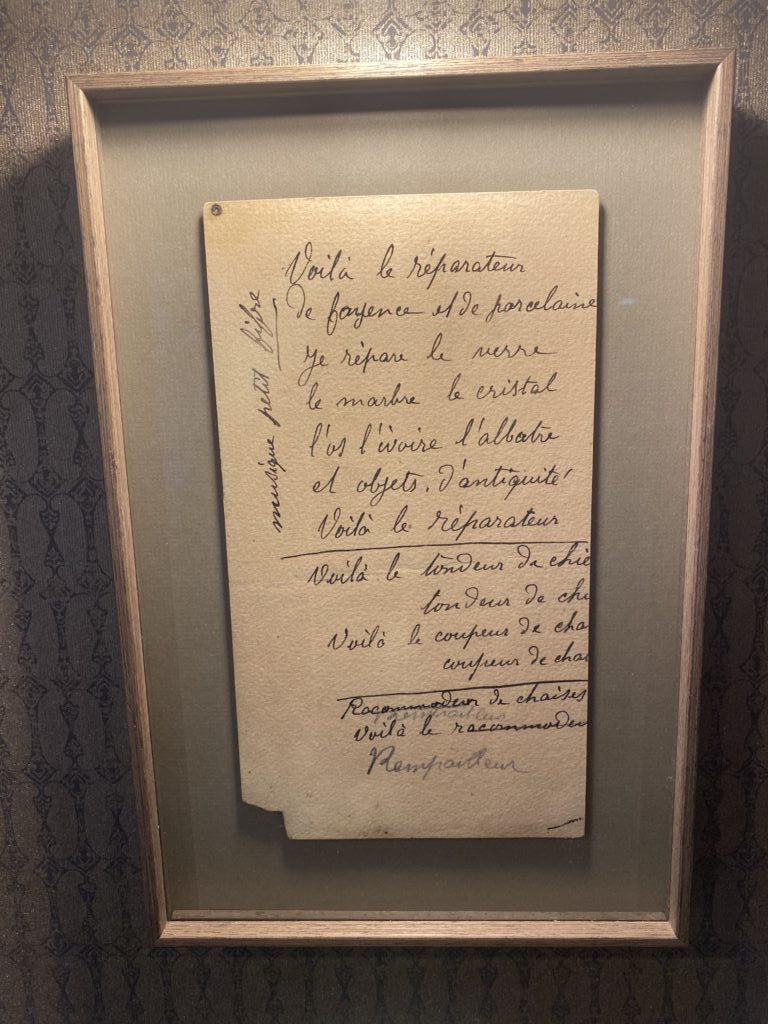 musique petit fifre
Voilà le réparateur
de fayence et de porcelaine
Je répare le verre
le marbre le cristal
l'os l'ivoire l'albatre
et objets d'antiquité
Voilà le réparateur
Voilà le tondeur de chie
tondeur de chi
Voilà le coupeur de cha
coupeur de chat
Racommodeur de chaises
Rempailleur
Voilà le racommodeu
Rempailleur